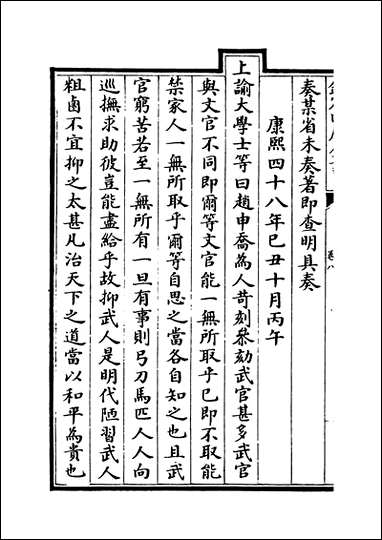 奏某省未奏著即查明具奏
康熙四十八年己丑十月丙午
上諭大學士等曰趙申喬為人苛刻叅劾武官甚多武官
與文官不同即爾等文官能一無所取乎己即不取能
禁家人一無所取乎爾等自思之當各自知之也且武
官窮苦若至一無所有一旦有事則弓刀馬匹人人向
巡撫求助彼豈能盡給乎故抑武人是明代陋習武人
粗鹵不宜抑之太甚凡治天下之道當以和平為貴也